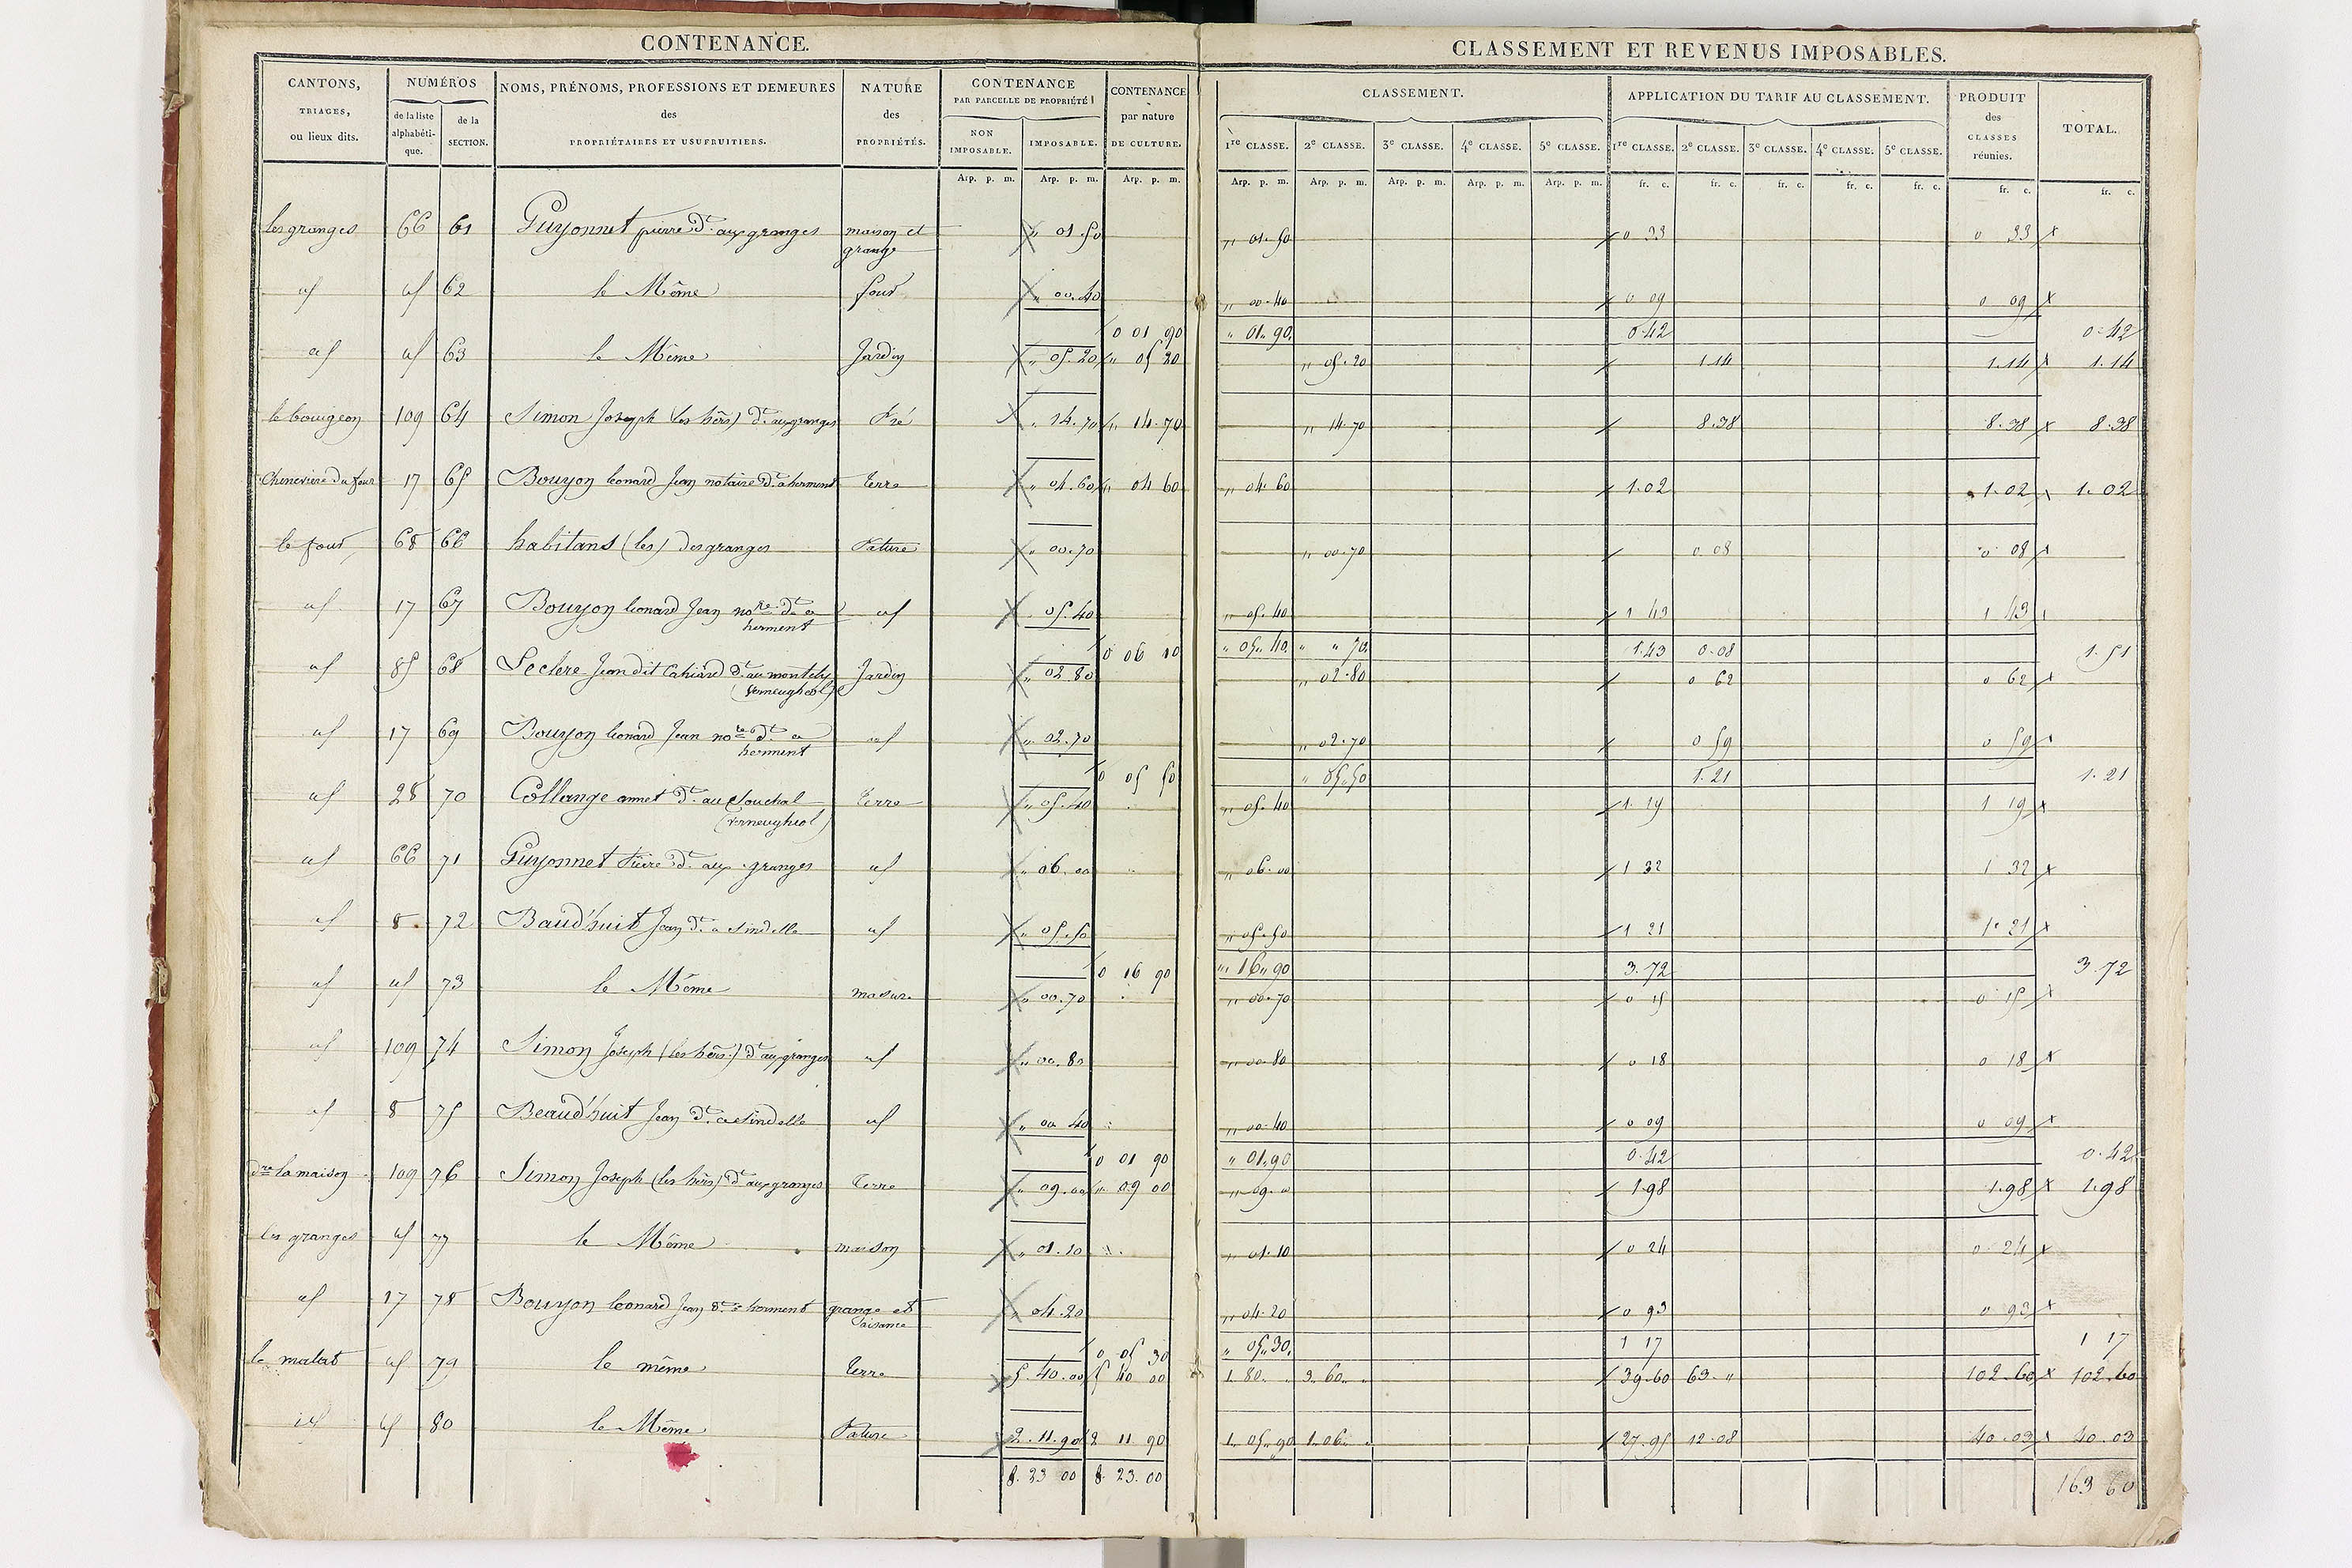 CONTENANCE.
CLASSEMENT ET REVENUS IMPOSABLES.
CANTONS, TRIAGES, ou lieux dits.
NUMÉROS
de la liste alphabétique.
de la SECTION.
NOMS, PRÉNOMS, PROFESSIONS ET DEMEURES
des
PROPRIÉTAIRES ET USUFRUITIERS.
NATURE des PROPRIÉTÉS.
CONTENANCE
PAR PARCELLE DE PROPRIÉTÉ
NON IMPOSABLE.
IMPOSABLE.
CONTENANCE par nature DE CULTURE.
CLASSEMENT.
1re CLASSE. 2e CLASSE. 3e CLASSE. 4e CLASSE. 5e CLASSE.
APPLICATION DU TARIF AU CLASSEMENT.
1re CLASSE. 2e CLASSE. 3e CLASSE. 4e CLASSE. 5e CLASSE.
PRODUIT des CLASSES réunies.
TOTAL.
Arp. p. m. Arp. p. m. Arp. p. m. Arp. p. m. Arp. p. m. Arp. p. m. Arp. p. m. Arp. p. m. fr. c. fr. c. fr. c. fr. c. fr. c. fr. c. fr. c.
les granges 66 61 Guyonnet pierre dt. aux granges maison et grange " 01.50 " 01.50 0 33 0 33
id 62 le Même four " 00.40 " 00.40 0 09 0 09
0 01 90 " 01.90 0.42 0.42
id id 63 le Même Jardin " 05.20 " 05 20 " 05.20 1.14 1.14 1.14
le bougeon 109 64 Simon Joseph (les hérs) dt. aux granges Pré " 14.70 " 14.70 " 14.70 8.38 8.38 8.38
Cheneviere du four 17 65 Bouyon leonard Jean notaire dt. a herment terre " 04.60 " 04 60 " 04 60 1.02 1.02 1.02
le four 68 66 habitans (les) des granges Pature " 00.70 " 00.70 0 08 0 08
id 17 67 Bouyon leonard Jean nore. dt. a herment id " 05.40 " 05.40 1 43 1 43
0 06 10 " 05.40 " " 70 1.43 0.08 1.51
id 85 68 Leclere Jean dit Cahiard dt. au montely (verneugheol) Jardin " 02.80 " 02.80 0 62 0 62
id 17 69 Bouyon leonard Jean nore dt. a herment id " 02.70 " 02.70 0 59 0 59
0 05 50 " 05.50 1.21 1.21
id 28 70 Collange annet dt. au Souchal (verneugheol) terre " 05.40 " 05.40 1.19 1 19
id 66 71 Guyonnet Pierre dt. aux granges id " 06.00 " 06.00 1 32 1 32
id 8 72 Baud'huit Jean dt. a sindelle id " 05.50 " 05.50 1 21 1.21
0 16 90 " 16.90 3.72 3.72
id id 73 le Même masure " 00.70 " 00.70 0 15 0 15
id 109 74 Simon Joseph (les hérs.) dt aux granges id " 00.80 " 00.80 0 18 0 18
id 8 75 Beaud'huit Jean dt. a sindelle id " 00 40 " 00.40 0 09 0 09
0 01 90 " 01.90 0.42 0.42
dre la maison 109 76 Simon Joseph (les hérs) dt aux granges terre " 09.00 " 09 00 " 09.0 1.98 1.98 1.98
les granges id 77 le Même maison " 01.10 " 01.10 0 24 0 24
id 17 78 Bouyon leonard Jean dt. a herment grange et aisance " 04.20 " 04.20 0 93 0 93
0 05 30 " 05.30 1 17 1 17
id 79 le même terre 5.40.00 5 40 00 1.80. " 3.60. " 39.60 63. " 102.60 102.60
id id 80 le Même Pature 2.11.90 2 11 90 1.05.90 1.06. " 27.95 12.08 40.03 40.03
8.23 00 8.23.00 163 60